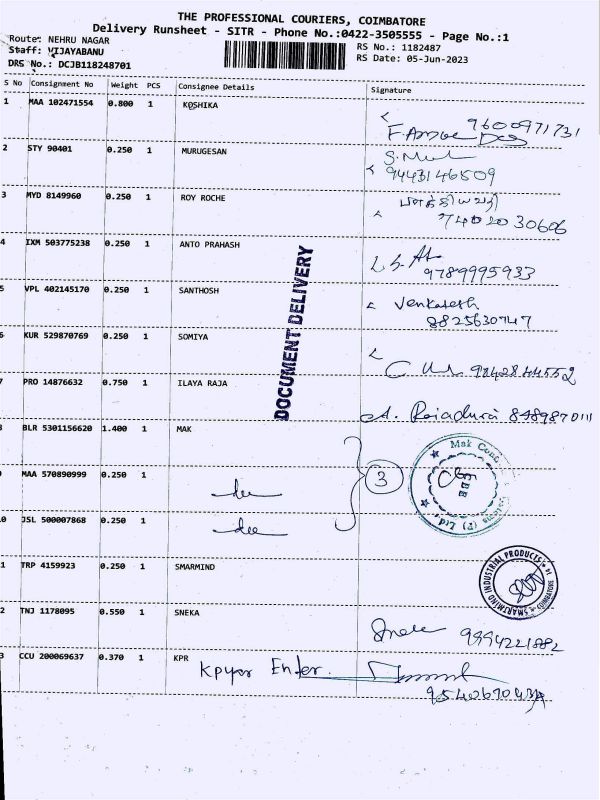 THE PROFESSIONAL COURIERS, COIMBATORE
Delivery Runsheet - SITR - Phone No.:0422-3505555 - Page No.:1
Route: NEHRU NAGAR
Staff: VIJAYABANU
DRS No.: DCJB118248701
RS No.: 1182487
RS Date: 05-Jun-2023
S No Consignment No Weight PCS Consignee Details Signature
1 MAA 102471554 0.800 1 KOSHIKA
9600971731
2 STY 90401 0.250 1 MURUGESAN
9443146509
3 MYD 8149960 0.250 1 ROY ROCHE
7402030606
4 IXM 503775238 0.250 1 ANTO PRAHASH
9789995933
5 VPL 402145170 0.250 1 SANTHOSH
Venkatesh
8825630747
6 KUR 529870769 0.250 1 SOMIYA
9842844552
7 PRO 14876632 0.750 1 ILAYA RAJA
A. Rajadurai 8489870111
DOCUMENT DELIVERY
8 BLR 5301156620 1.400 1 MAK
Mak
(P) Ltd.
MAA 570890999 0.250 1
3
0 JSL 500007868 0.250 1
1 TRP 4159923 0.250 1 SMARMIND
SMARTMIND INDUSTRIAL PRODUCTS
COIMBATORE
2 TNJ 1178095 0.550 1 SNEKA
Sneka 9994221882
3 CCU 200069637 0.370 1 KPR